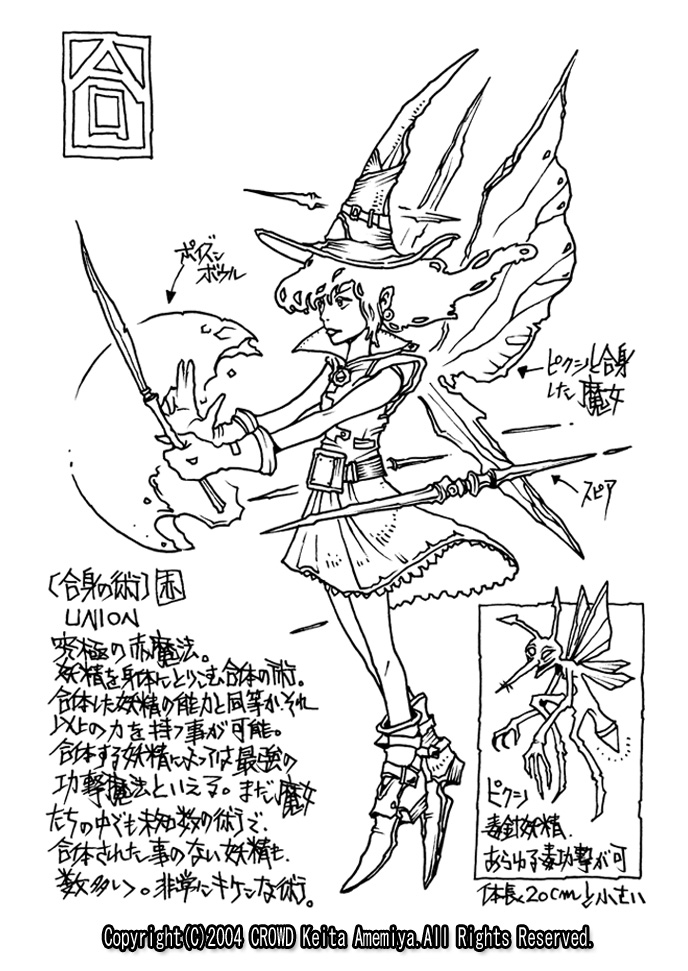 合
ポイズン
ボウル
ピクシーと合身
した魔女
スピア
〔合身の術〕赤
UNION
究極の赤魔法。
妖精を身体にとりこむ合体の術。
合体した妖精の能力と同等か、それ
以上の力を持つ事が可能。
合体する妖精によっては最強の
功撃魔法といえる。まだ魔女
たちの中でも未知数の術で、
合体された事のない妖精も
数多い。非常にキケンな術。
ピクシー
毒針妖精
あらゆる毒功撃が可
体長20cmと小さい
Copyright(C)2004 CROWD Keita Amemiya.All Rights Reserved.